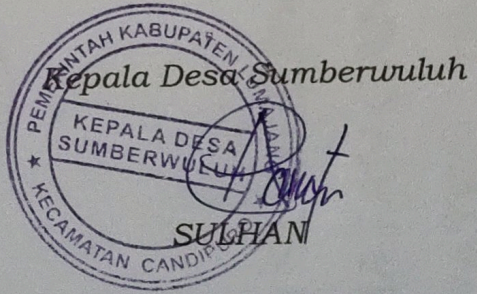 Kepala Desa Sumberwuluh
PEMERINTAH KABUPATEN LUMAJANG
KEPALA DESA
SUMBERWULUH
KECAMATAN CANDIPURO
SULHAN